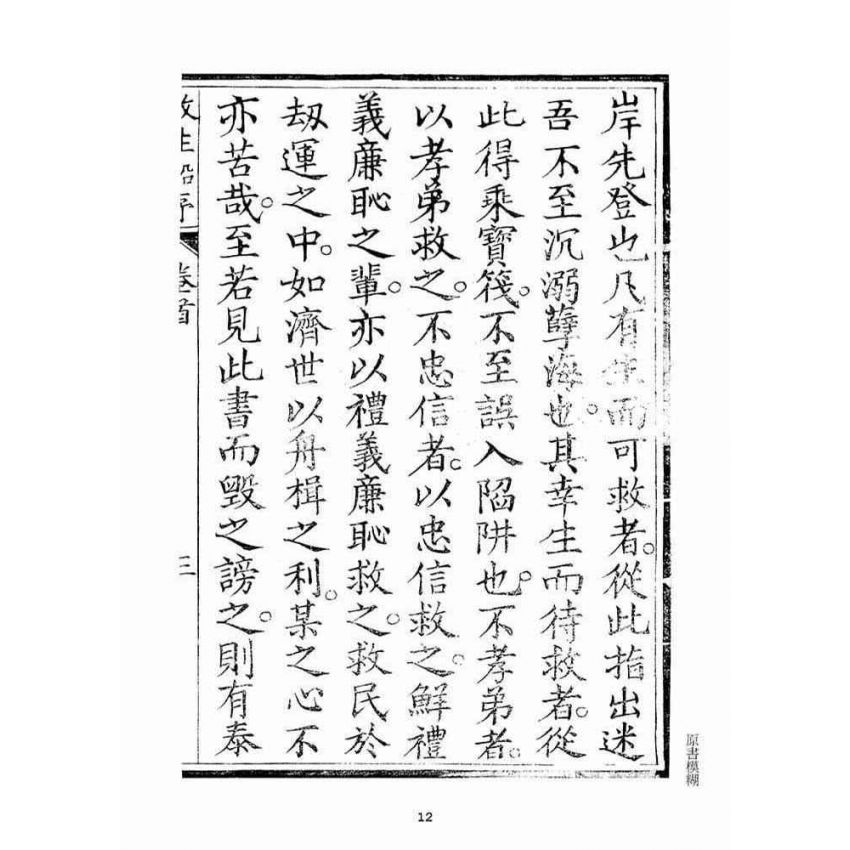 岸先登也凡有生而可救者。從此指出迷
吾不至沉溺孽海也。其幸生而待救者。從
此得乘寶筏。不至誤入陷阱也。不孝弟者。
以孝弟救之。不忠信者。以忠信救之。鮮禮
義廉恥之輩。亦以禮義廉恥救之。救民於
刼運之中。如濟世以舟楫之利。某之心不
亦苦哉。至若見此書而毀之謗之。則有泰
救生船序 卷首 三
原書模糊
12